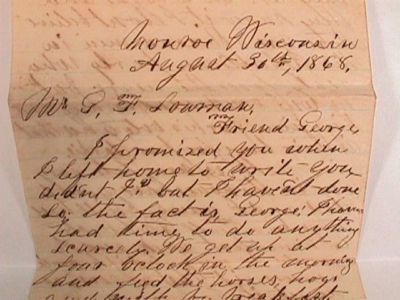 Monroe Wisconsin
August 30th, 1868.
Mr G. F. Lowman,
my Friend George
I promised you when
I left home to write you
didnt I? but I havent done
so. the fact is, George, I havn
had time to do anything
scarcely. We get up at
four oclock in the morning
and feed the horses, hogs